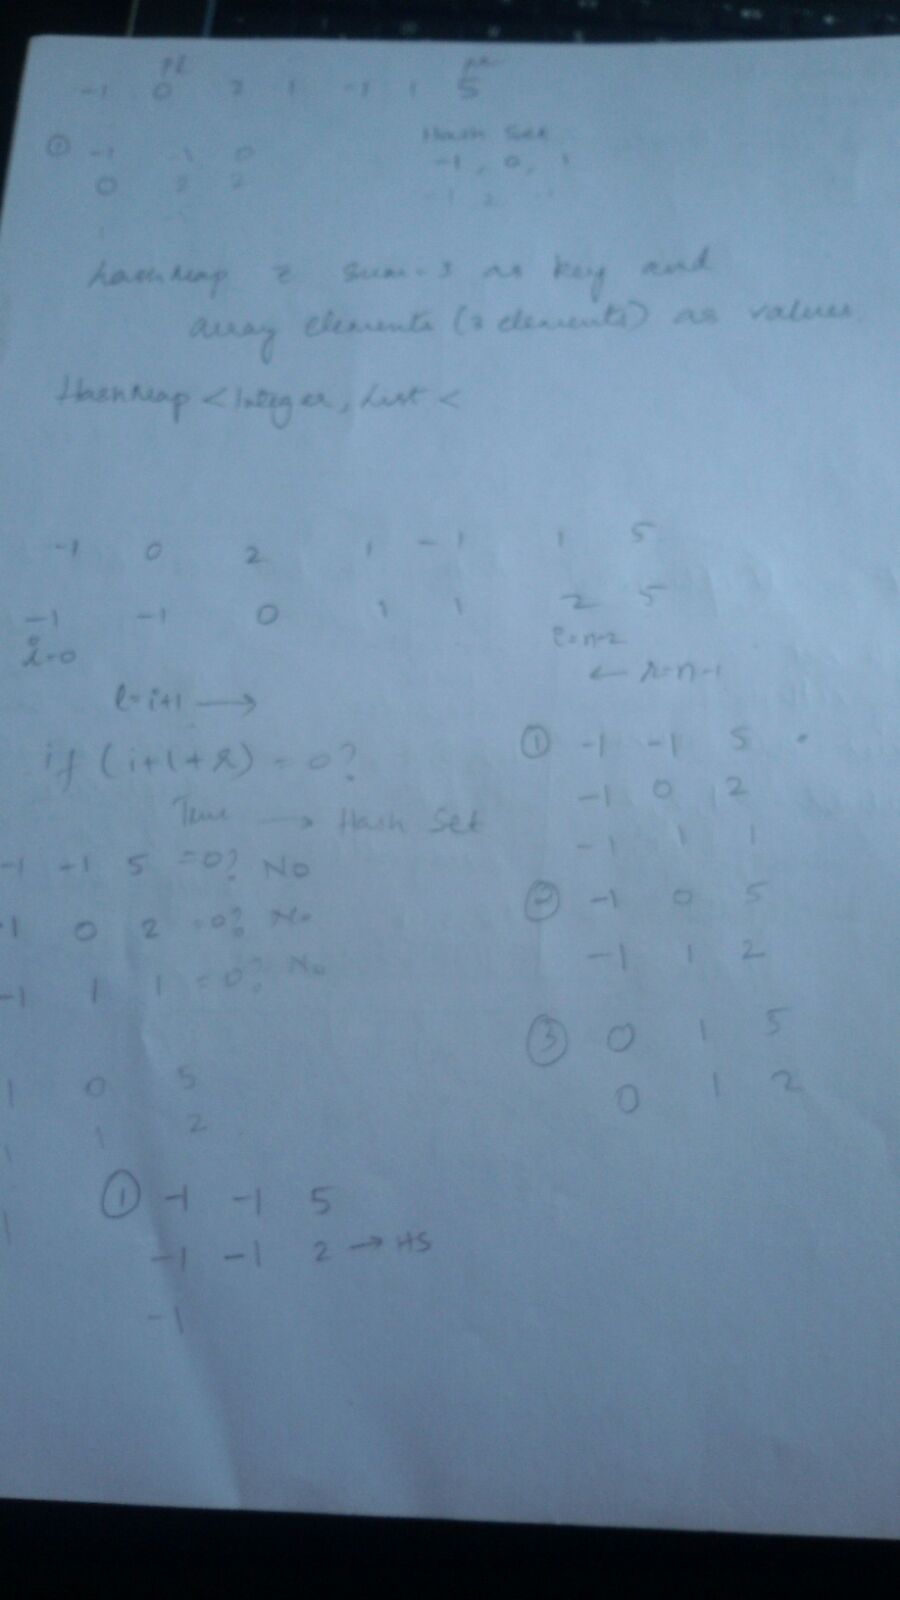 pl
-1 0 2 1 -1 1 5
① -1 -1 0
0 2 2
Hash Set
-1, 0, 1
-1 2 -1
sum as key and
array elements (2 elements) as values.
HashMap <Integer, List <
-1 0 2 1 -1 1 5
-1 -1 0 1 1 2 5
i=0
i=n-2
← r=n-1
l=i+1 →
if (i+l+r) = 0?
True → Hash Set
-1 -1 5 =0? No
-1 0 2 =0? No
-1 1 1 =0? No
1 0 5
1 1 2
1
① -1 -1 5
-1 0 2
-1 1 1
② -1 0 5
-1 1 2
③ 0 1 5
0 1 2
① -1 -1 5
-1 -1 2 → HS
-1